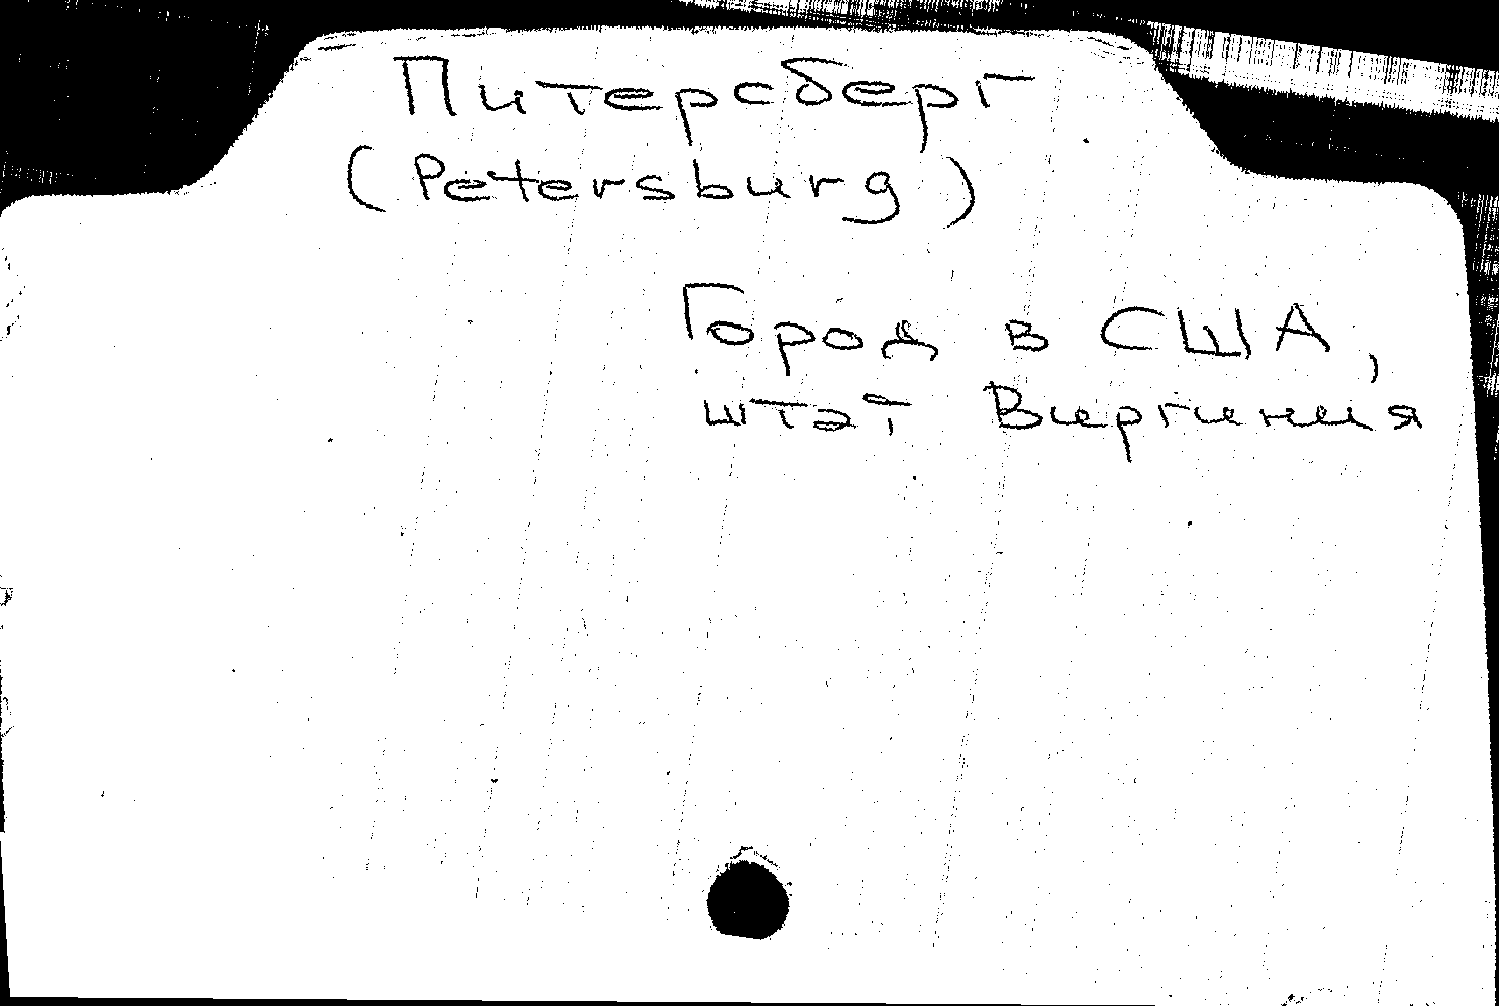 Питерсберг
(Petersburg)
Город в США,
штат Виргиния